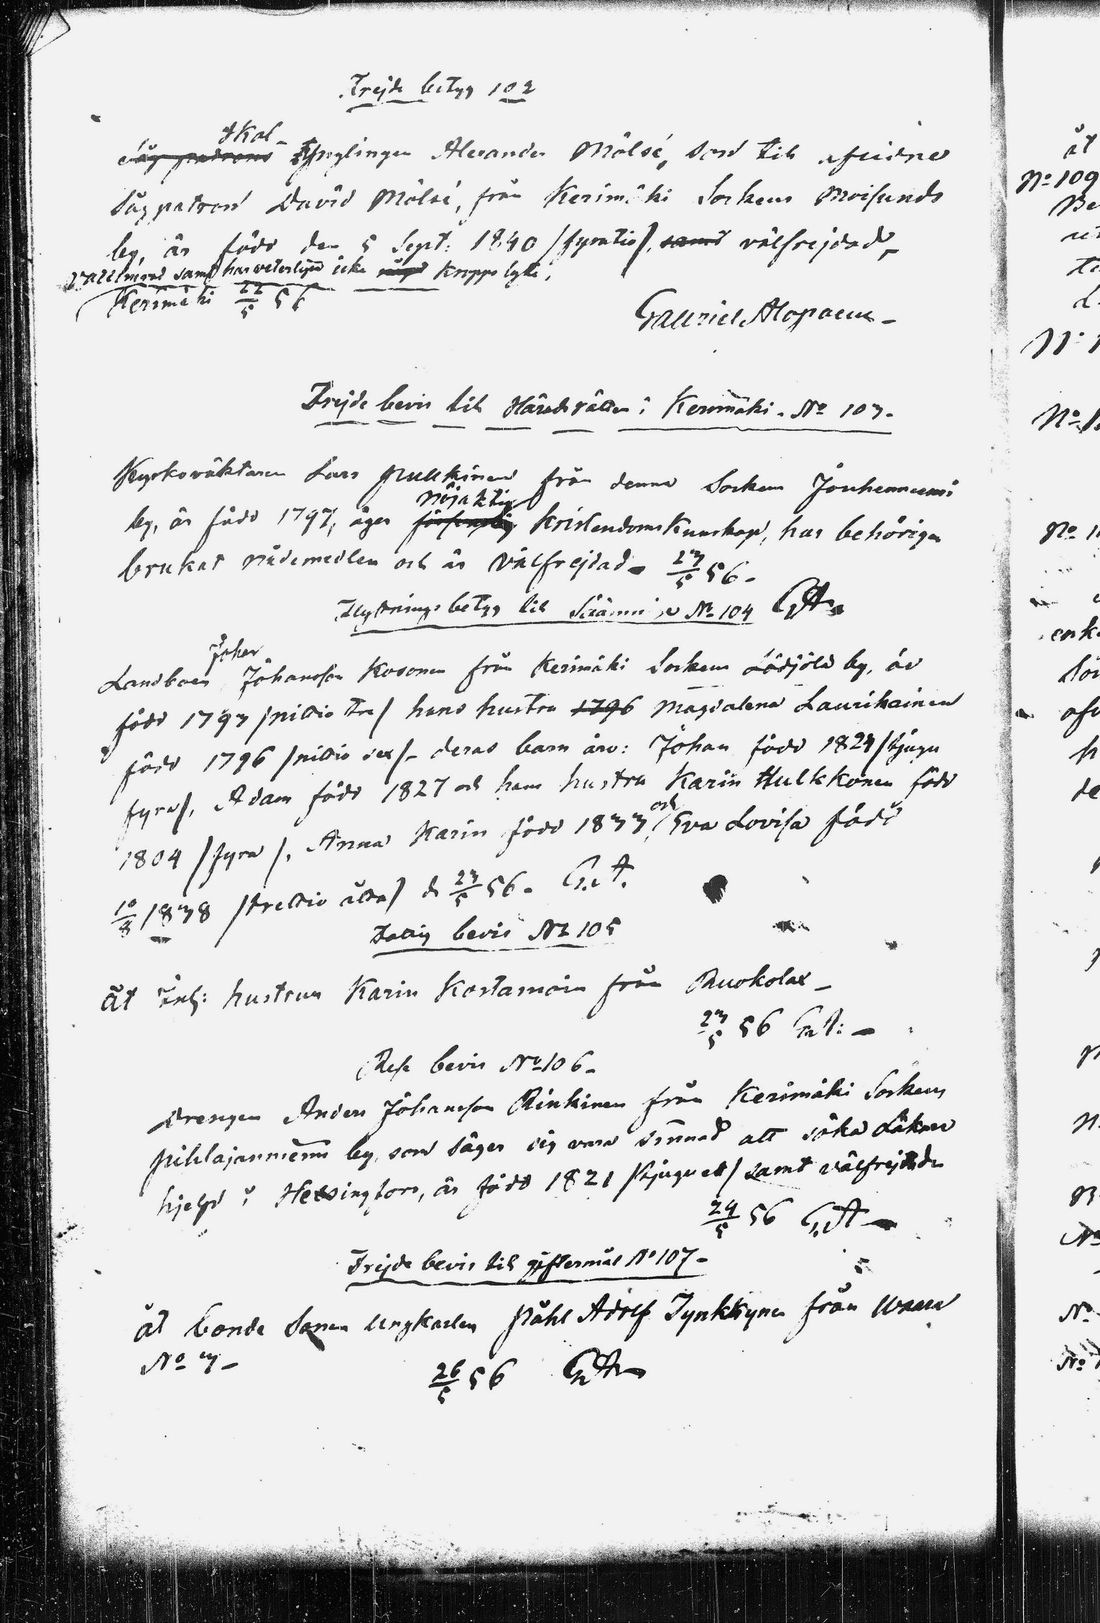 Frejde betyg 102
Skol
Såg patrons Ynglingen Alexander Mölsé, son till afledne
Såg patron David Mölsé, från Kerimäki Sockens Moisunds
by, är född den 5 Sept: 1840 /fyratio/, samt välfrejdad,
vaccinerad samt har veterligen icke något kroppslyte.
Kerimäki 22/5 56
Gabriel Alopaeus
Frejde bevis till Häradsrätten i Kerimäki. No 103.
Kyrkoväktaren Lars Pulkinen från denna Socken Jouhenniemi
nöjaktig
by, är född 1797, äger försvarlig Kristendoms Kunskap, har behörigen
brukat nådemedlen och är välfrejdad. 23/5 56.
Flyttnings betyg till Sääminge No 104 G.A.
Johan
Landboen Johansson Kosonen från Kerimäki Sockens by, är
född 1793 /nittio tre/ hans hustru 1796 Magdalena Laurikainen
född 1796 /nittio sex/. deras barn äro: Johan född 1824 /tjugu
fyra/, Adam född 1827 och hans hustru Karin Hulkkonen född
1804 /fyra/, Anna Karin född 1833, och Eva Lovisa född
10/8 1838 /trettio åtta/ d 23/5 56. G. A.
Fattig bevis No 105
åt Inh: hustrun Karin Kostamoin från Ruokolax
23/5 56 G. A:
Rese bevis No 106
Drengen Anders Johansson Rinkinen från Kerimäki Sockens
Pihlajanniemi by, som säger sig vara sinnad att söka Läkare
hjelp i Helsingfors, är född 1821 /tjugu ett/ samt välfrejdade
24/5 56 G. A.
Frejde bevis till giftermål No 107
åt bonde Sonen Ungkarlen Påhl Adolf Tynkkynen från
No 3
26/5 56 G. A.
åt
No 109